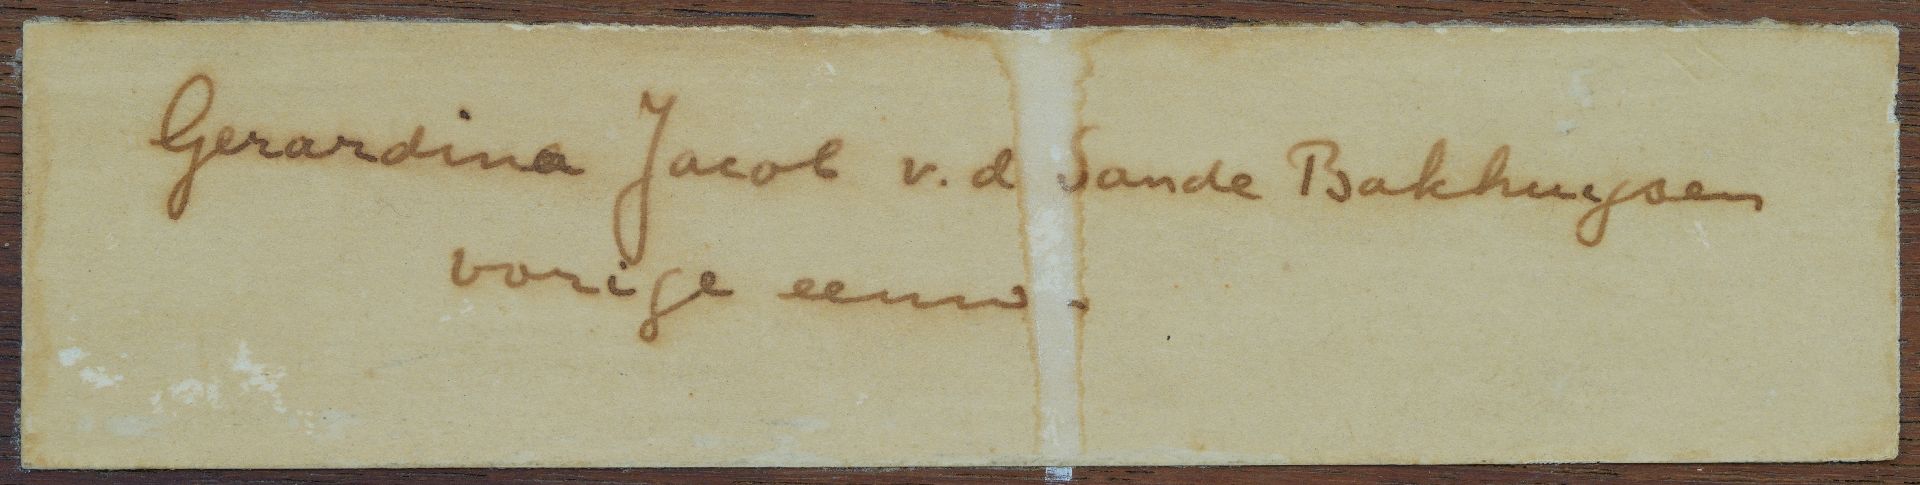 Gerardina Jacob v. d Sande Bakhuysen
vorige eeuw.